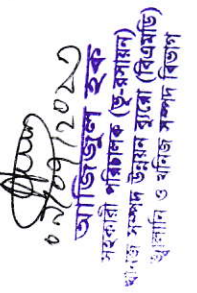 ০২/০৭/২০২৩
আজিজুল হক
সহকারী পরিচালক (ভূ-রসায়ন)
খনিজ সম্পদ উন্নয়ন ব্যুরো (বিএমডি)
জ্বালানি ও খনিজ সম্পদ বিভাগ